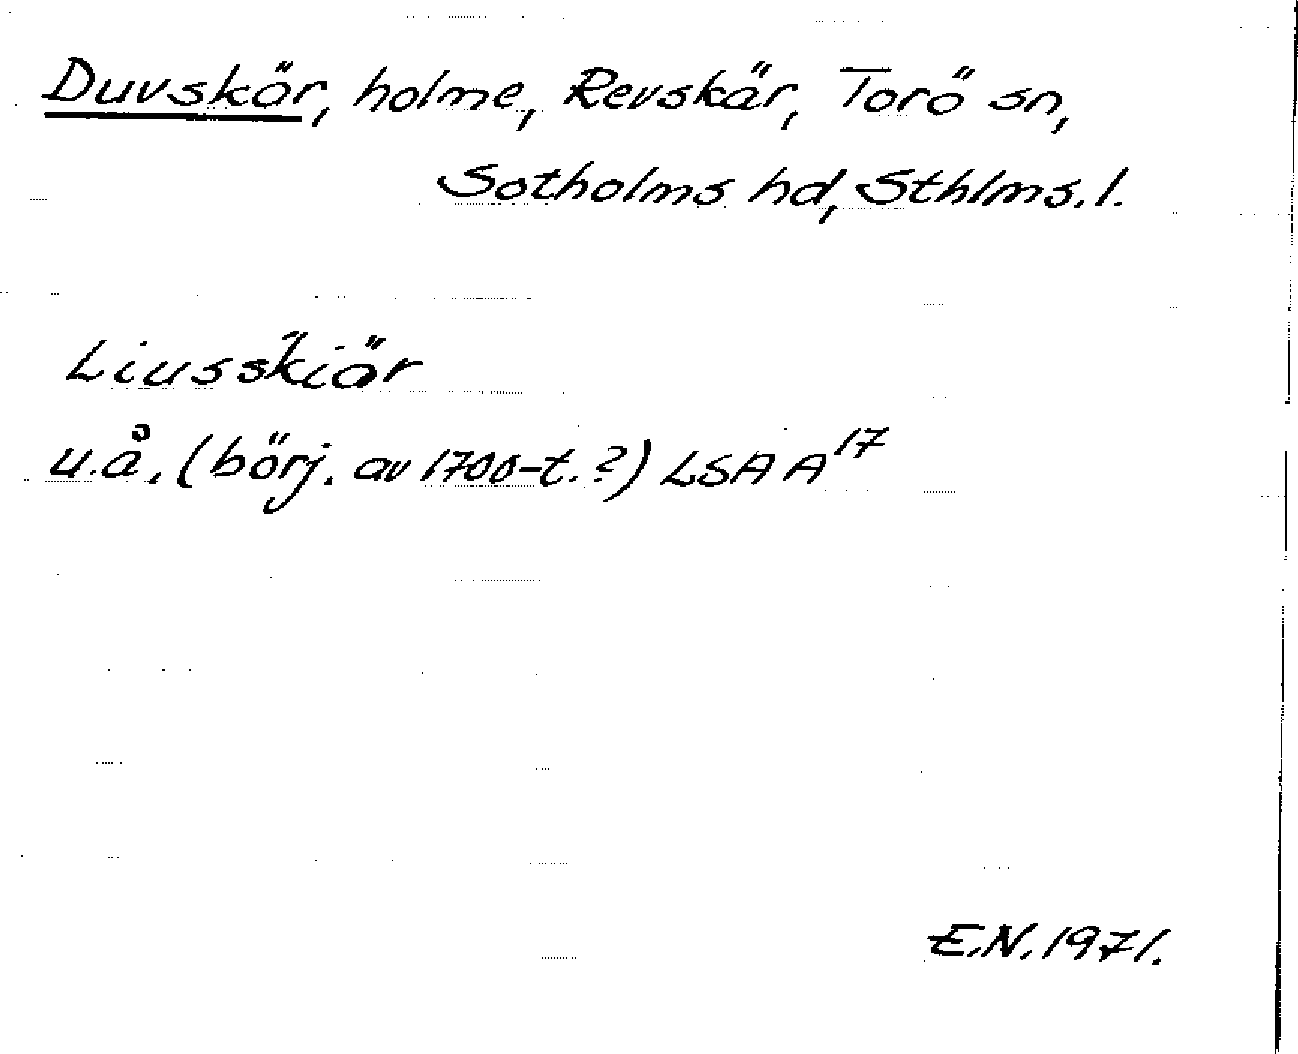 Duvskär, holme, Revskär, Torö sn,
Sotholms hd, Sthlms. l.
Liusskiär
u.å. (börj. av 1700-t.?) LSA A 17
E.N. 1971.